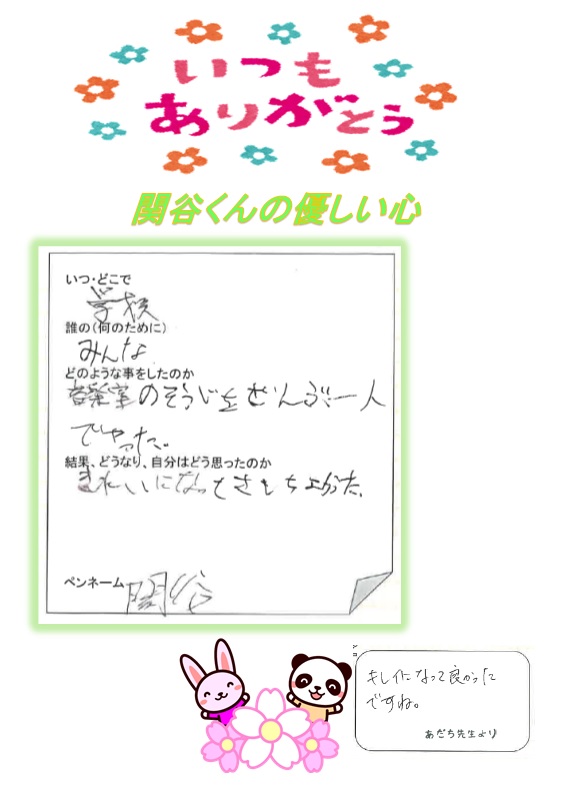 いつも
ありがとう
関谷くんの優しい心
いつ・どこで
学校
誰の(何のために)
みんな
どのような事をしたのか
音楽室のそうじをぜんぶ一人
でやった。
結果、どうなり、自分はどう思ったのか
きれいになってきもちよかった.
ペンネーム 関谷
キレイになって良かった
ですね。
あだち先生より